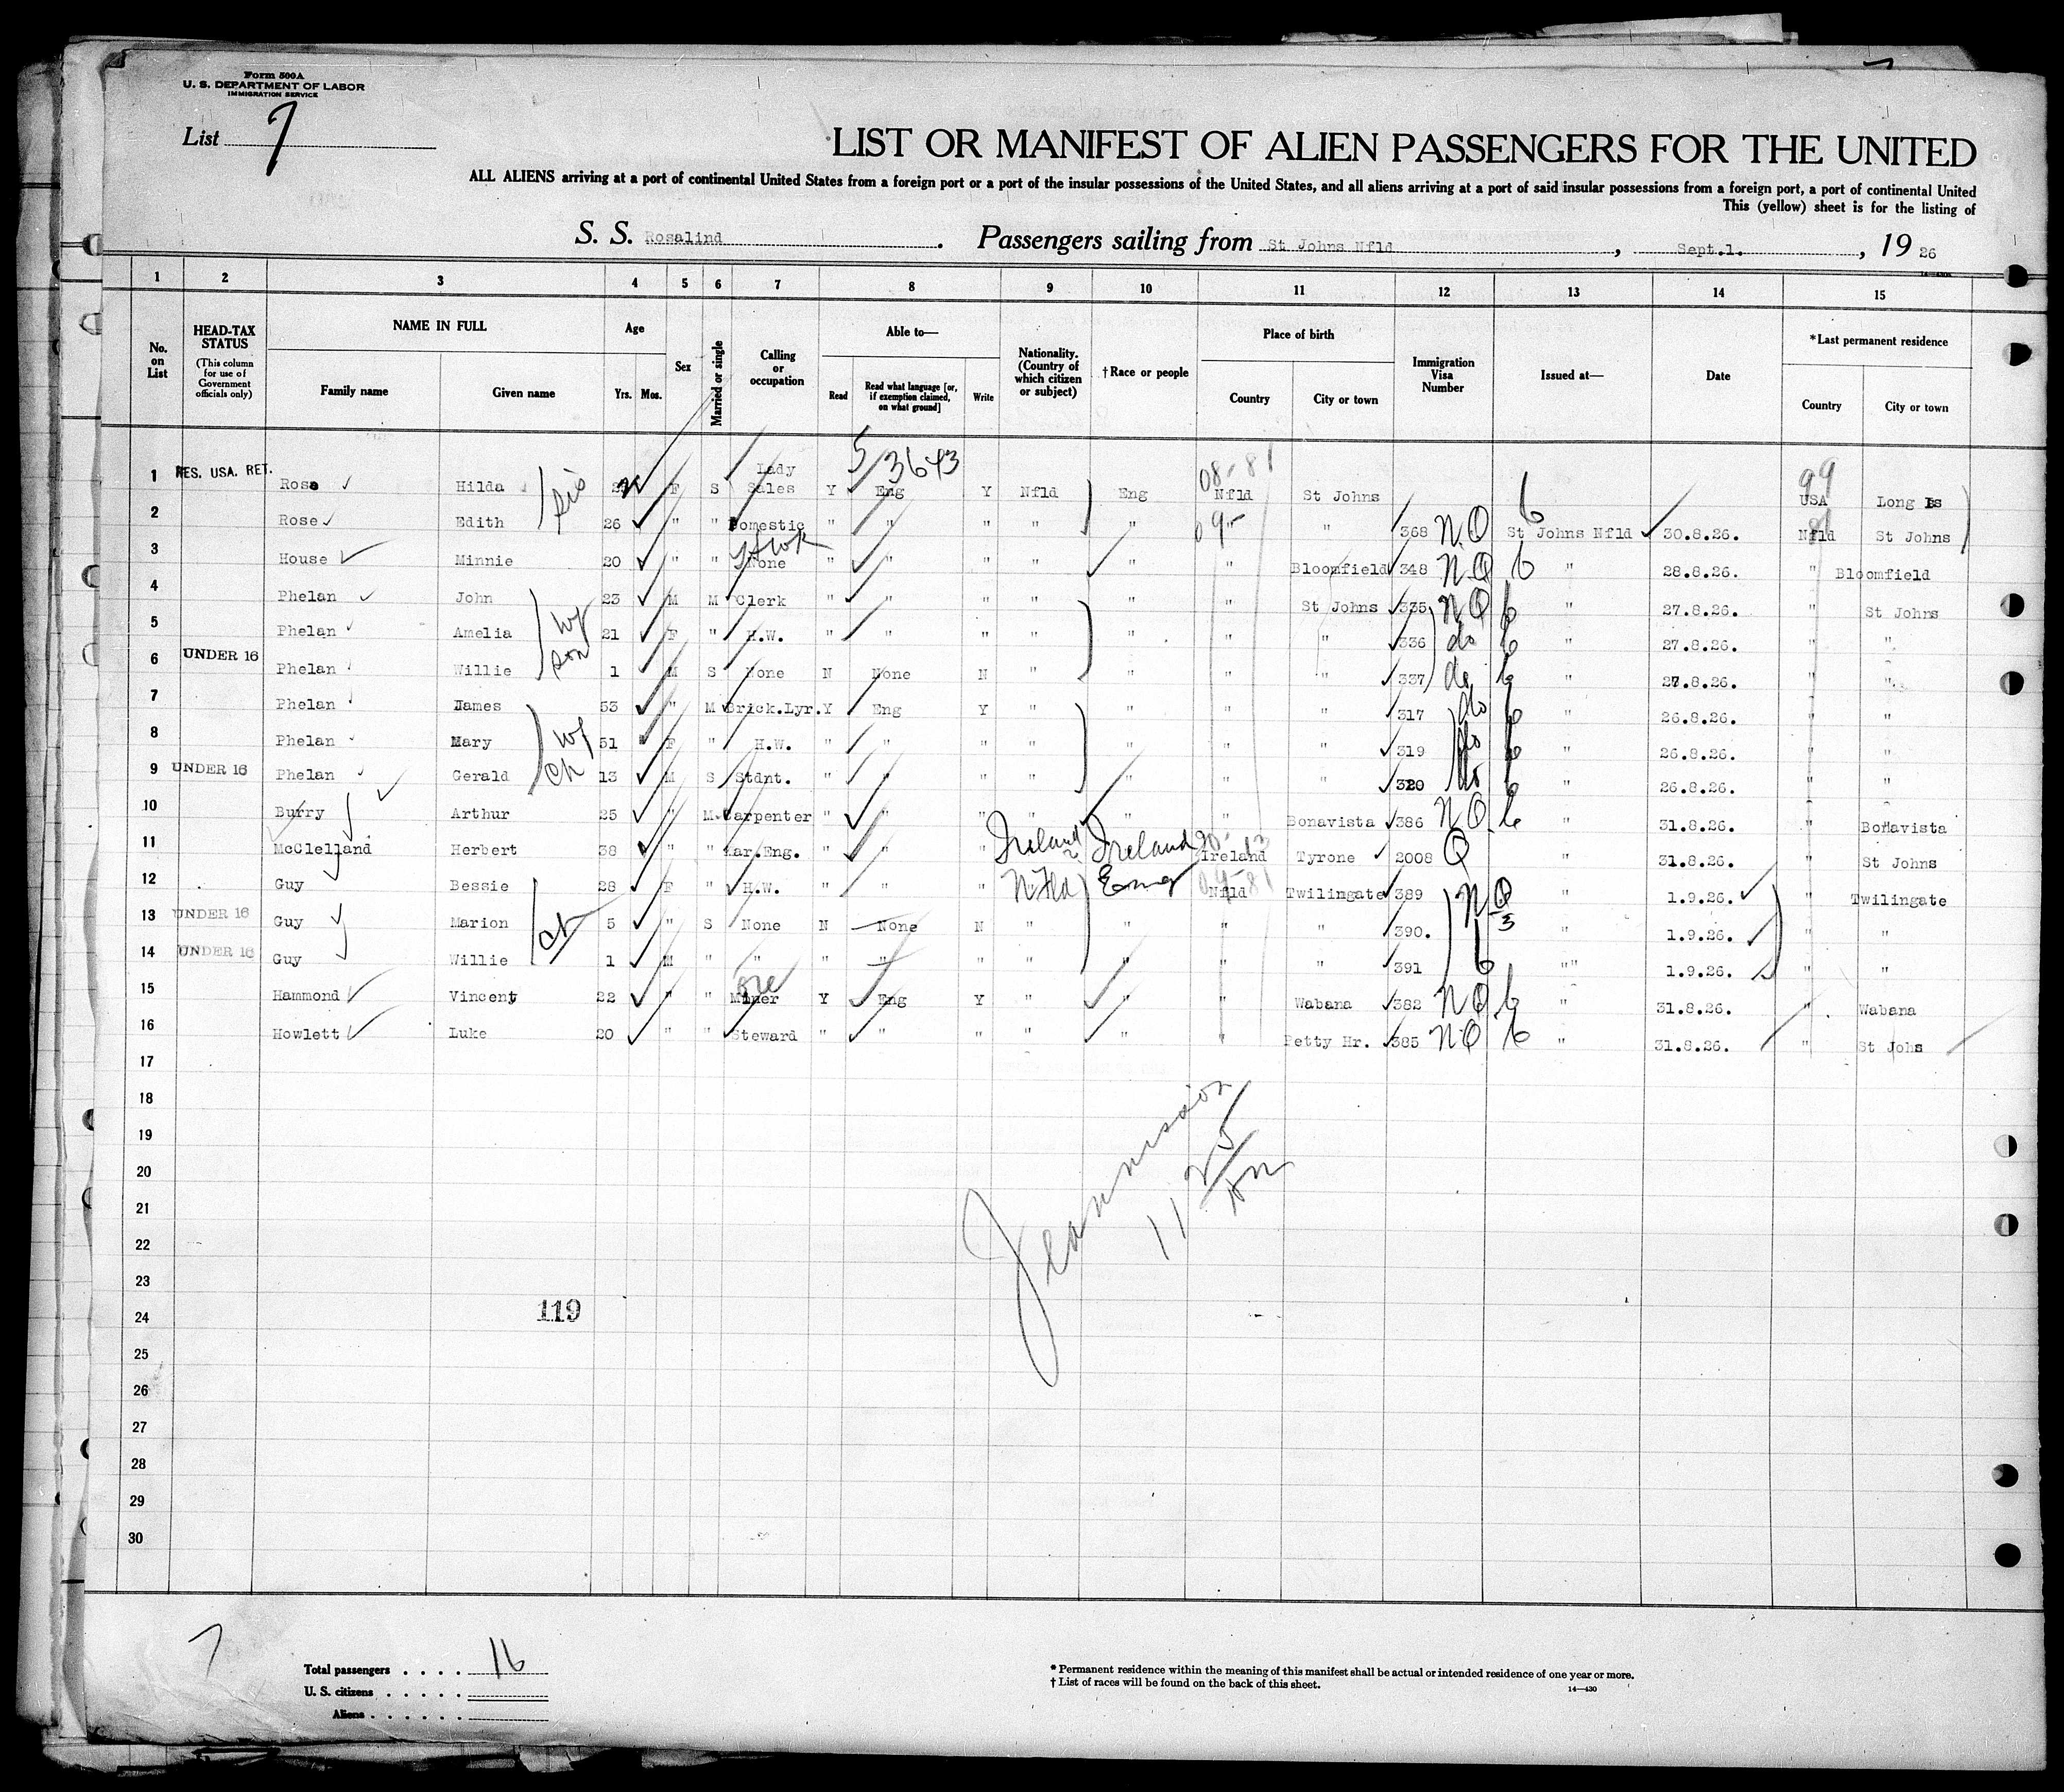 Form 500A
U. S. DEPARTMENT OF LABOR
IMMIGRATION SERVICE
List 7
LIST OR MANIFEST OF ALIEN PASSENGERS FOR THE UNITED
ALL ALIENS arriving at a port of continental United States from a foreign port or a port of the insular possessions of the United States, and all aliens arriving at a port of said insular possessions from a foreign port, a port of continental United
This (yellow) sheet is for the listing of
S. S. Rosalind . Passengers sailing from St Johns Nfld , Sept.1. , 19 26
1 2 3 4 5 6 7 8 9 10 11 12 13 14 15
No. on List
HEAD-TAX STATUS (This column for use of Government officials only)
NAME IN FULL
Family name Given name
Age
Yrs. Mos.
Sex
Married or single
Calling or occupation
Able to—
Read Read what language [or, if exemption claimed, on what ground] Write
Nationality. (Country of which citizen or subject)
† Race or people
Place of birth
Country City or town
Immigration Visa Number
Issued at—
Date
*Last permanent residence
Country City or town
5/3643 08-81 99
1 RES. USA. RET. Rose Hilda sis F S Lady Sales Y Eng Y Nfld Eng Nfld St Johns USA Long Is
2 Rose Edith 26 " " Domestic " " " " " " " 368 NQ St Johns Nfld 30.8.26. Nfld St Johns
3 House Minnie 20 " " None " " " " " " Bloomfield 348 NQ " 28.8.26. " Bloomfield
4 Phelan John 23 M M Clerk " " " " " " St Johns 335 NQ " 27.8.26. " St Johns
5 Phelan Amelia wf 21 F " H.W. " " " " " " " 336 do " 27.8.26. " "
6 UNDER 16 Phelan Willie son 1 M S None N None N " " " " 337 do " 27.8.26. " "
7 Phelan James 53 " M Brick.Lyr. Y Eng Y " " " " 317 do " 26.8.26. " "
8 Phelan Mary wf 51 F " H.W. " " " " " " " 319 do " 26.8.26. " "
9 UNDER 16 Phelan Gerald ch 13 M S Stdnt. " " " " " " " 320 do " 26.8.26. " "
10 Burry Arthur 25 " M Carpenter " " " " " " Bonavista 386 NQ " 31.8.26. " Bonavista
11 McClelland Herbert 38 " " Mar.Eng. " " " Ireland Ireland Ireland Tyrone 2008 Q " 31.8.26. " St Johns
12 Guy Bessie 28 F " H.W. " " " Nfld Eng Nfld Twilingate 389 NQ " 1.9.26. " Twilingate
13 UNDER 16 Guy Marion ch 5 " S None N None N " " " " 390. 3 " 1.9.26. " "
14 UNDER 16 Guy Willie 1 M " " " " " " " " " 391 "" 1.9.26. " "
15 Hammond Vincent 22 " " Ore Miner Y Eng Y " " " Wabana 382 NQ " 31.8.26. " Wabana
16 Howlett Luke 20 " " Steward " " " " " " Petty Hr. 385 NQ " 31.8.26. " St Johs
17
18
19
20
21
22
23
24
25
26
27
28
29
30
11 25
119
7
Total passengers . . . . 16
U. S. citizens . . . . .
Aliens . . . . . .
* Permanent residence within the meaning of this manifest shall be actual or intended residence of one year or more.
† List of races will be found on the back of this sheet.
14—430